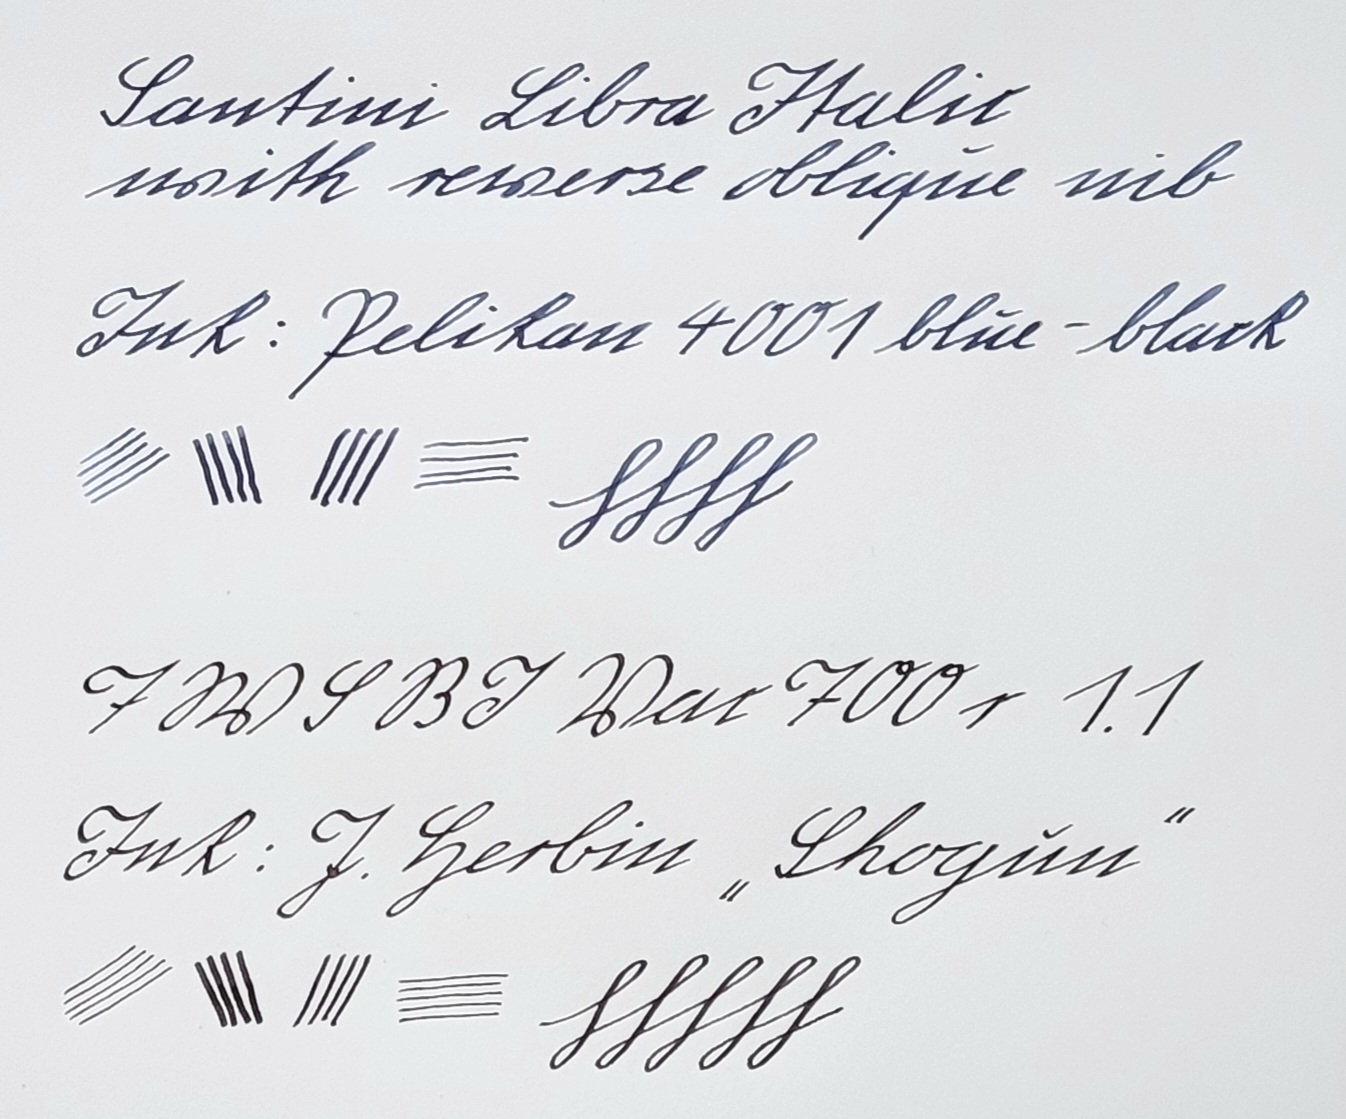 Santini Libra Italic
with reverse oblique nib
Ink: Pelikan 4001 blue-black
FWSBI Vac 700r 1.1
Ink: J. Herbin „Shogun“